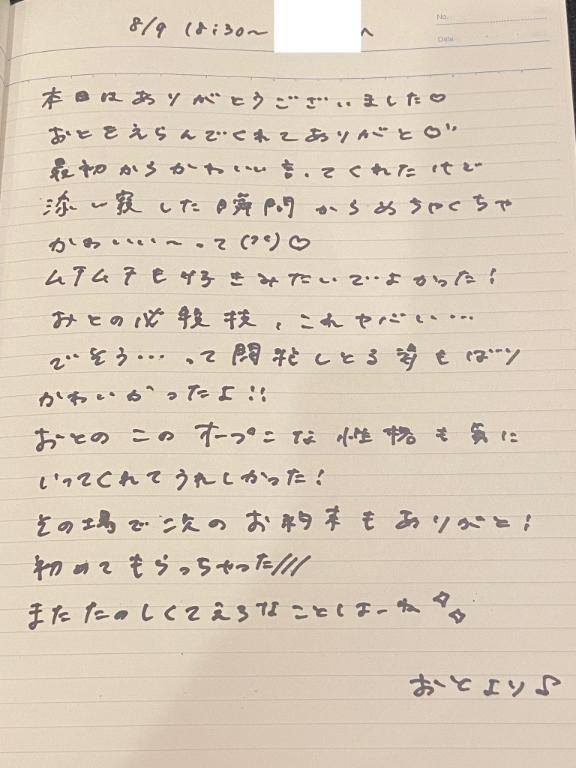 8/9 18:30〜 へ
No.
Date
本日はありがとうございました♡
おとをえらんでくれてありがと♡"
最初からかわいい言ってくれたけど
添い寝した瞬間からめちゃくちゃ
かわいいい〜って(°°)♡
ムチムチも好きみたいでよかった!
おとの必殺技、これヤバい…
でそう…って悶絶しとる姿もばり
かわいかったよ!!
おとのこのオープンな性格も気に
いってくれてうれしかった!
その場で次のお約束もありがと!
初めてもらっちゃった///
またたのしくてえろいことしよーね
おとより♪